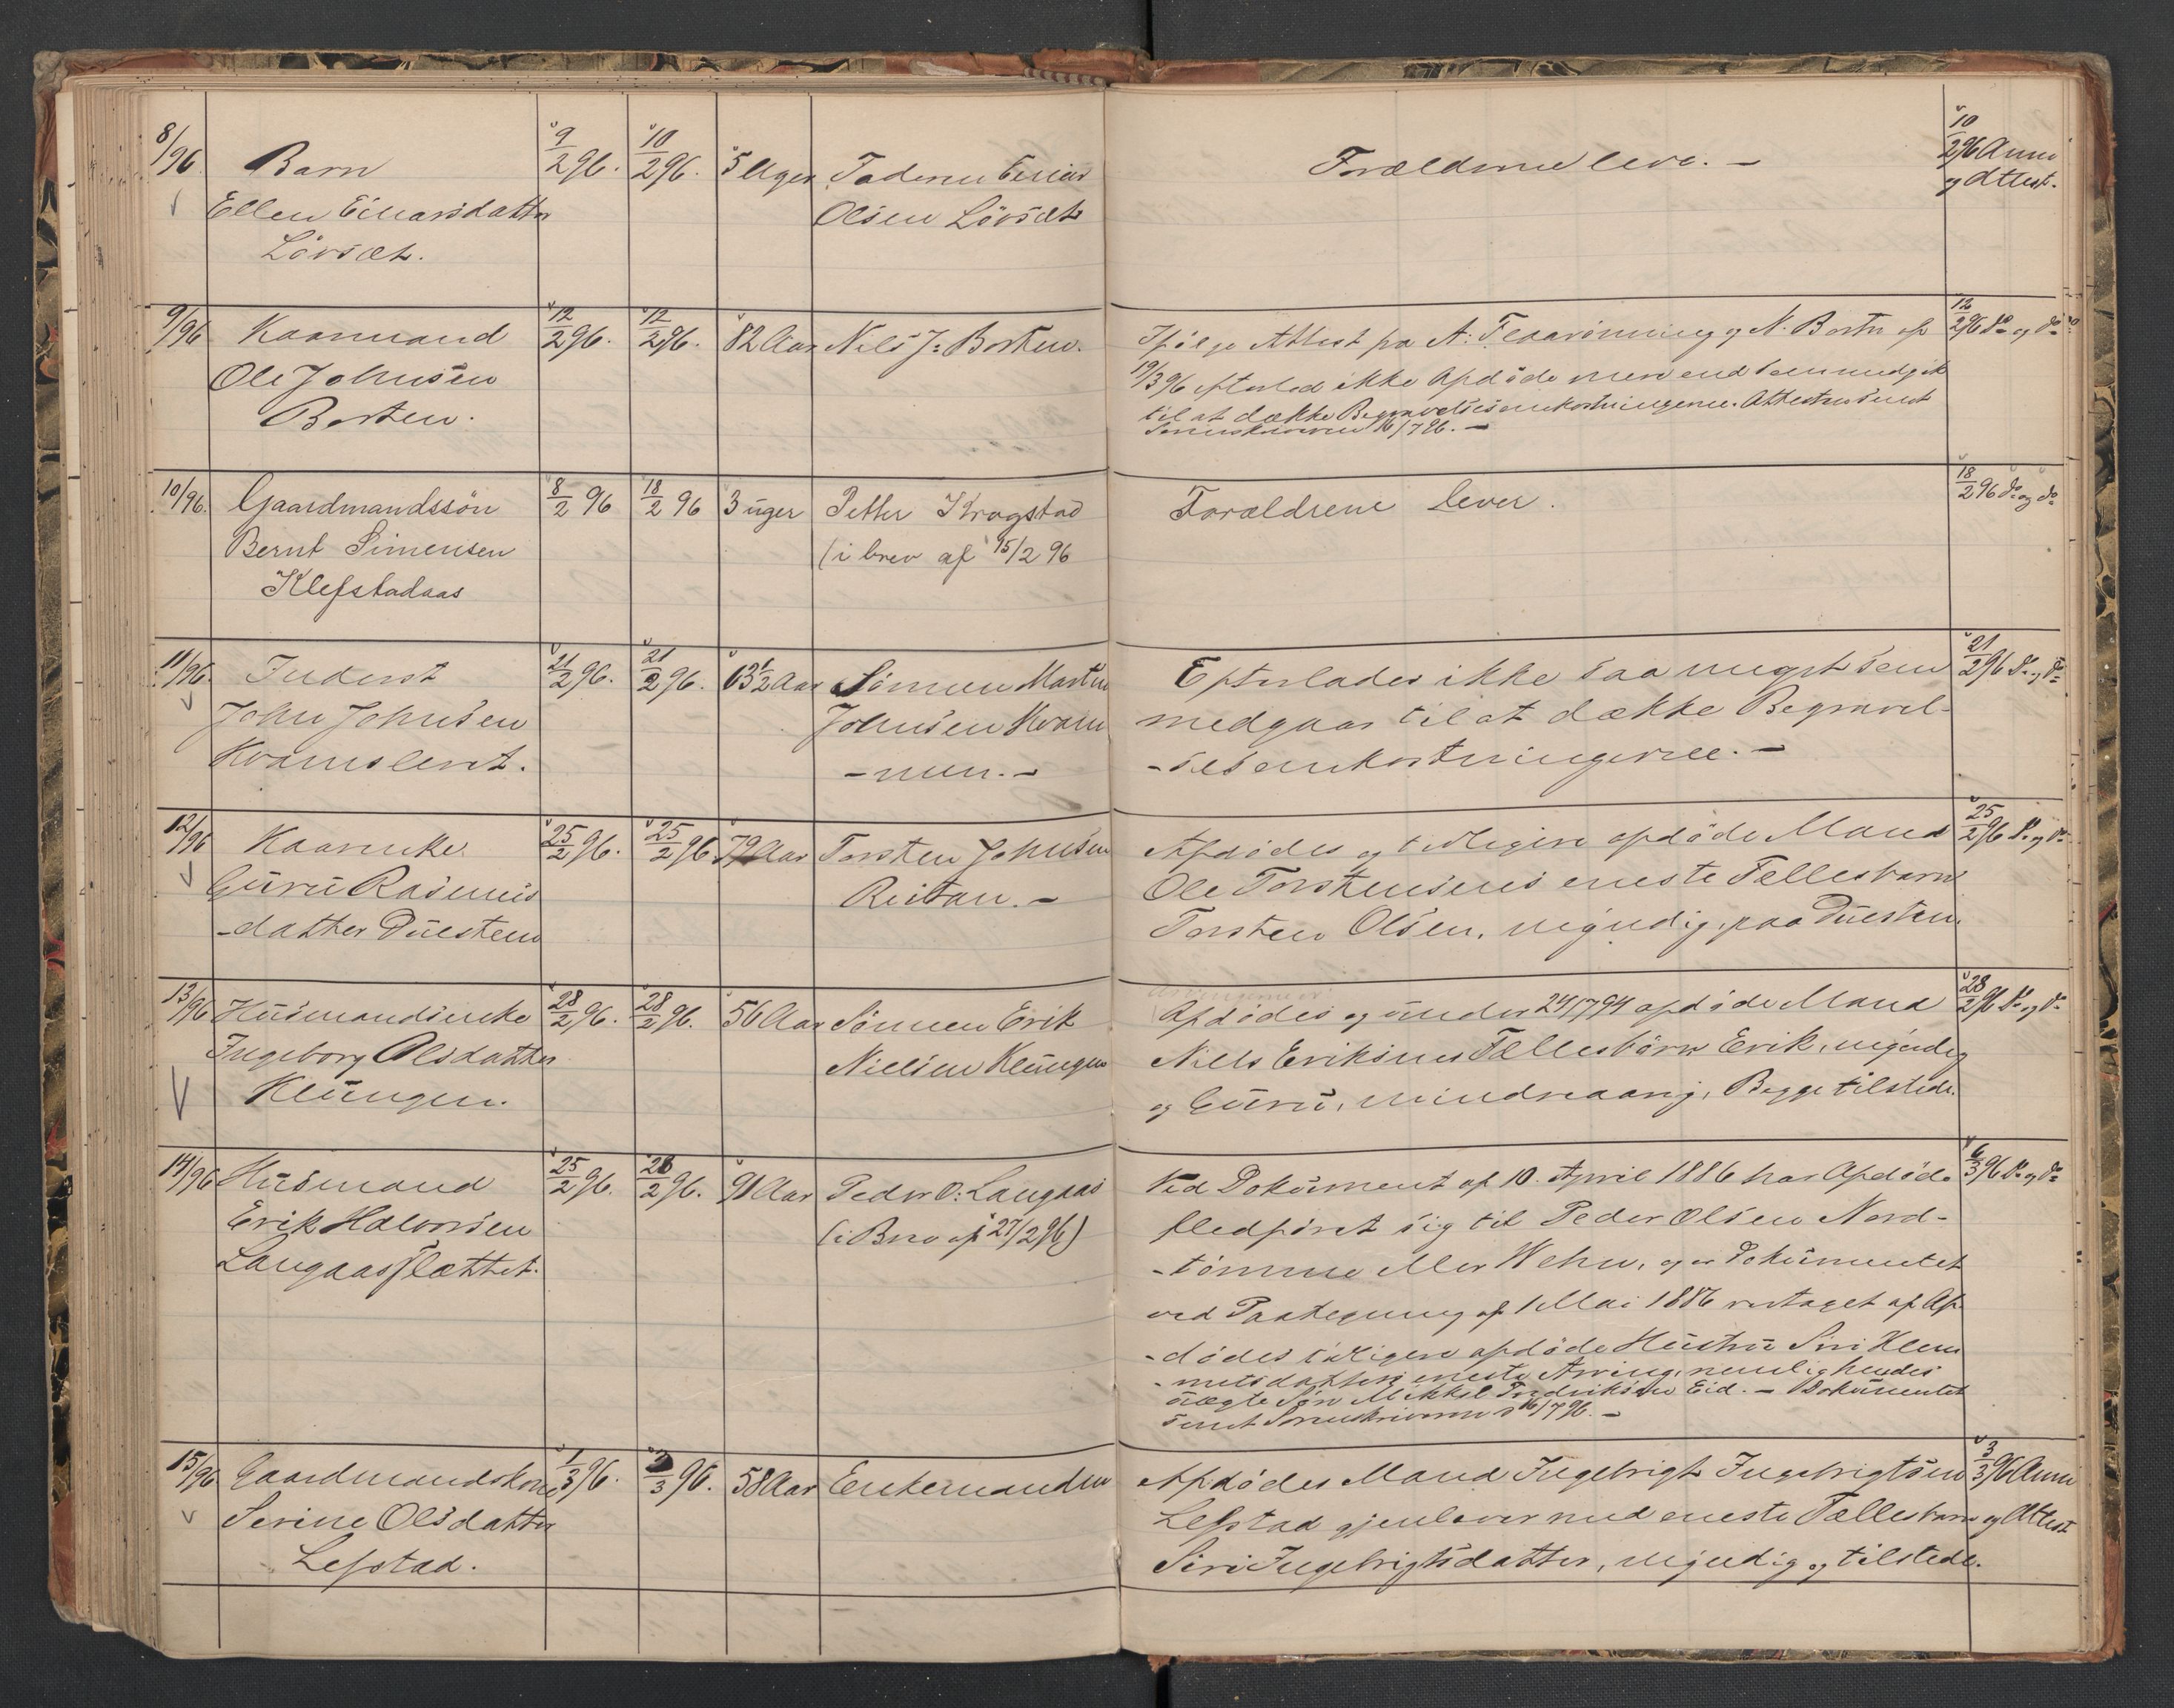 8/96. Barn 9/2 96. 10/2 96. 5 Uger Faderen Einar Forældrene leve. – 10/2 96 Anm
Ellen Einarsdatter Olsen Lövsæt og Attest.
Lövsæt.
9/96 Kaarmand 12/2 96. 12/2 96. 82 Aar Nils J: Borten. Ifölge Attest fra A: Flaarönning og N. Borten af 12/2 96 do og do
Ole Johnsen 19/3 96 efterlod ikke Afdöde mere end som medgik
Borten. til at dække Begravelsesomkostningerne. Attesten sendt
Sorenskriveren 16/7 96. –
10/96. Gaardmandssön 8/2 96 18/2 96 3 uger Petter Krogstad Forældrene lever. 18/2 96 do og do
Bernt Simensen (i brev af 15/2 96
Klefstadaas
11/96. Inderst 21/2 96. 21/2 96. 63 1/2 Aar Sönnen Martin Efterlades ikke saa meget som 21/2 96 do og do
John Johnsen Johnsen Kvam medgaar til at dække Begravel-
Kvamslent. -men. – -sesomkostningerne. –
12/96 Kaarenke 25/2 96. 25/2 96 79 Aar Torsten Johnsen Afdödes og tidligere afdöde Mand 25/2 96 do og do
Guru Rasmus Reitan. – Ole Torstensens eneste Fællesbarn
-datter Duesten Torsten Olsen, myndig, paa Duesten.
13/96 Husmandsenke 28/2 96. 28/2 96. 56 Aar Sönnen Erik Afdödes og under 24/7 94 afdöde Mand 28/2 96 do og do
Ingeborg Olsdatter Nielsen Klungen Niels Eriksens Fællesbörn Erik, myndig
Klungen. og Guru, mindreaarig, Begge tilstede.
14/96 Husmand 25/2 96. 28/2 96. 91 Aar Peder O: Langaas Ved Dokument af 10. April 1886 har Afdöde 6/3 96 do og do
Erik Halvorsen (i Brev af 27/2 96) fledföret sig til Peder Olsen Nord-
Langaasslættet. -tömme eller Wehn, og er Dokumentet
ved Paategning af 1 Mai 1886 vedtaget af Af-
-dödes tidligere afdöde Hustru Siri Klem
-metsdatters eneste Arving, nemlig hendes
uægte Sön Mikkel Fredriksen Eid. – Dokumentet
sendt Sorenskriveren 16/7 96. –
15/96 Gaardmandskone 1/3 96. 3/3 96. 58 Aar Enkemanden Afdödes Mand Ingebrigt Ingebrigtsen 3/3 96 Anm
Serine Olsdatter Lefstad gjenlever med eneste Fællesbarn og Attest
Lefstad. Siri Ingebrigtsdatter, myndig og tilstede.